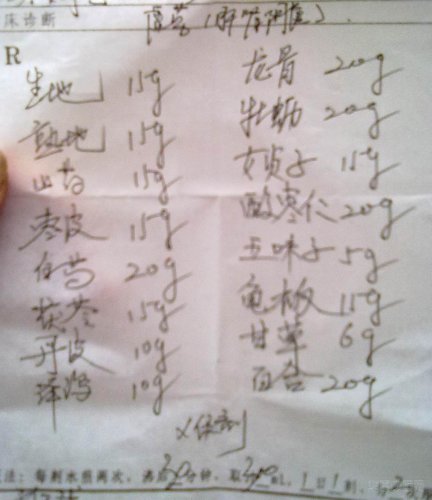 床诊断
虚劳(肝肾阴虚).
R
生地 15g 龙骨 20g
熟地 15g 牡蛎 20g
山药 15g 女贞子 15g
枣皮 15g 酸枣仁 20g
白芍 20g 五味子 5g
茯苓 15g 龟板 15g
丹皮 10g 甘草 6g
泽泻 10g 百合 20g
法：每剂水煎两次，沸后30分钟，取300mL，1日1剂，分2次